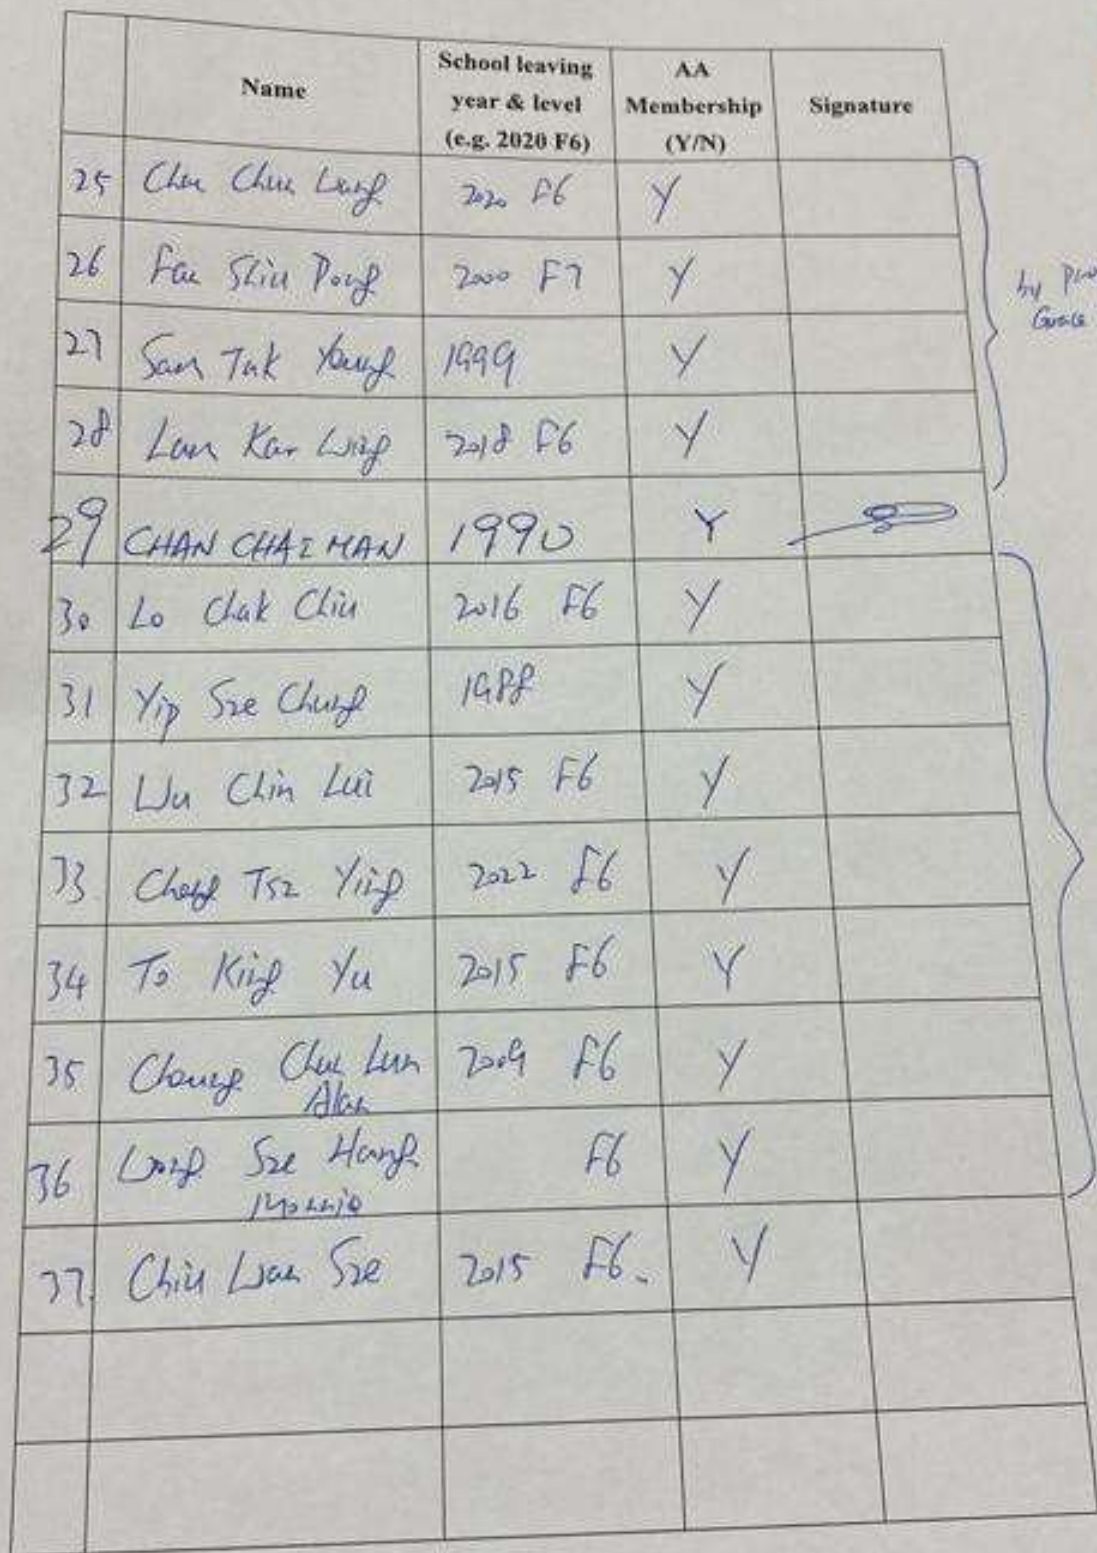 Name School leaving year & level (e.g. 2020 F6) AA Membership (Y/N) Signature
25 Chu Chun 2020 F6 Y
26 Fau Shiu Pong 2000 F7 Y
by
27 Sam Tak Yeung 1999 Y
28 Lam Kar Wing 2018 F6 Y
29 CHAN CHAI MAN 1990 Y
30 Lo Chak Chiu 2016 F6 Y
31 Yip Sze Chung 1988 Y
32 Wu Chin Lui 2015 F6 Y
33 Tsz Ying 2022 F6 Y
34 To King Yu 2015 F6 Y
35 Cheung Lun 2009 F6 Y
Alan
36 Wong Sze Hang F6 Y
37. Chiu Wan Sze 2015 F6. Y